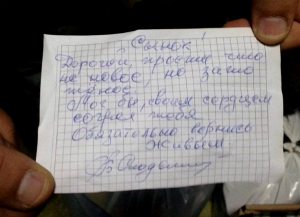 Сынок!
Дорогой, прости, что
не новое, но зато
тёплое.
Мог бы, своим сердцем
согрел тебя
Обязательно вернись
живым.